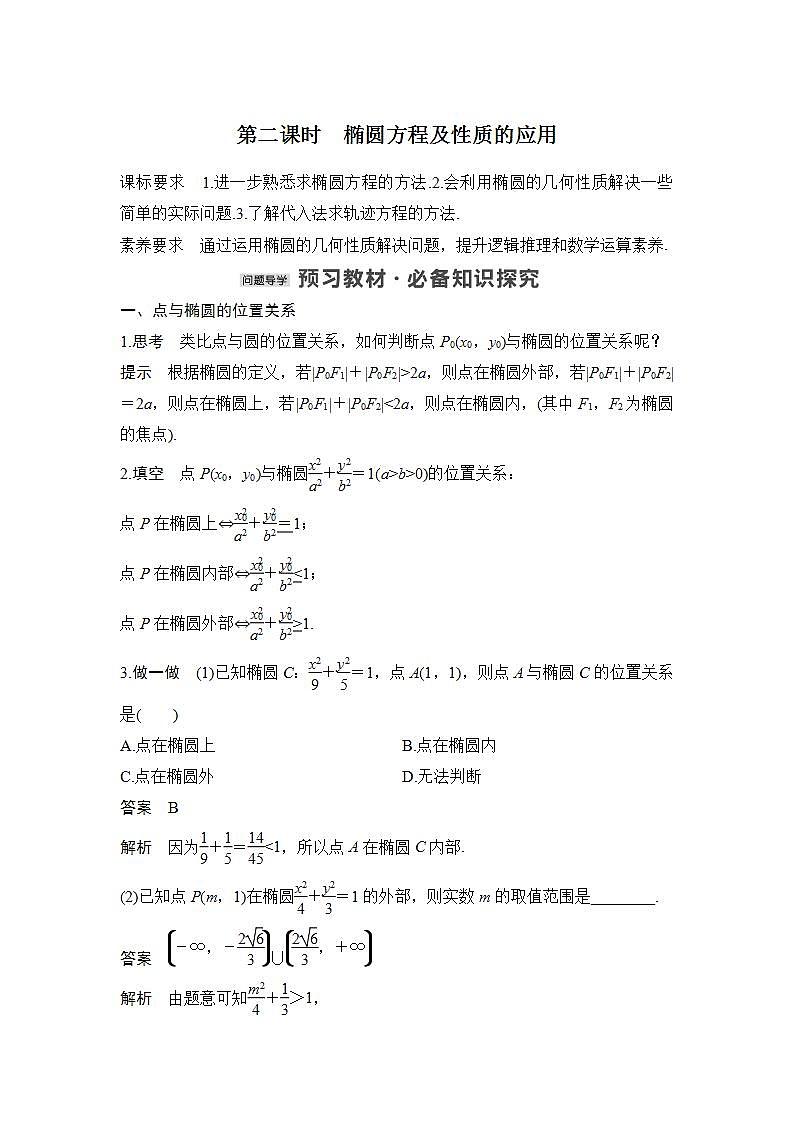 第二课时　椭圆方程及性质的应用
课标要求　1.进一步熟悉求椭圆方程的方法.2.会利用椭圆的几何性质解决一些
简单的实际问题.3.了解代入法求轨迹方程的方法.
素养要求　通过运用椭圆的几何性质解决问题，提升逻辑推理和数学运算素养.
问题导学 预习教材·必备知识探究
一、点与椭圆的位置关系
1.思考　类比点与圆的位置关系，如何判断点 P₀(x₀，y₀)与椭圆的位置关系呢？
提示　根据椭圆的定义，若|P₀F₁|＋|P₀F₂|>2a，则点在椭圆外部，若|P₀F₁|＋|P₀F₂|
＝2a，则点在椭圆上，若|P₀F₁|＋|P₀F₂|<2a，则点在椭圆内，(其中 F₁，F₂为椭圆
的焦点).
2.填空　点 P(x₀，y₀)与椭圆x²/a²＋y²/b²＝1(a>b>0)的位置关系：
点 P 在椭圆上⇔x₀²/a²＋y₀²/b²＝1；
点 P 在椭圆内部⇔x₀²/a²＋y₀²/b²<1；
点 P 在椭圆外部⇔x₀²/a²＋y₀²/b²>1.
3.做一做　(1)已知椭圆 C：x²/9＋y²/5＝1，点 A(1，1)，则点 A 与椭圆 C 的位置关系
是(　　)
A.点在椭圆上　B.点在椭圆内
C.点在椭圆外　D.无法判断
答案　B
解析　因为1/9＋1/5＝14/45<1，所以点 A 在椭圆 C 内部.
(2)已知点 P(m，1)在椭圆x²/4＋y²/3＝1 的外部，则实数 m 的取值范围是________.
答案　(－∞，－2√6/3)∪(2√6/3，＋∞)
解析　由题意可知m²/4＋1/3＞1，